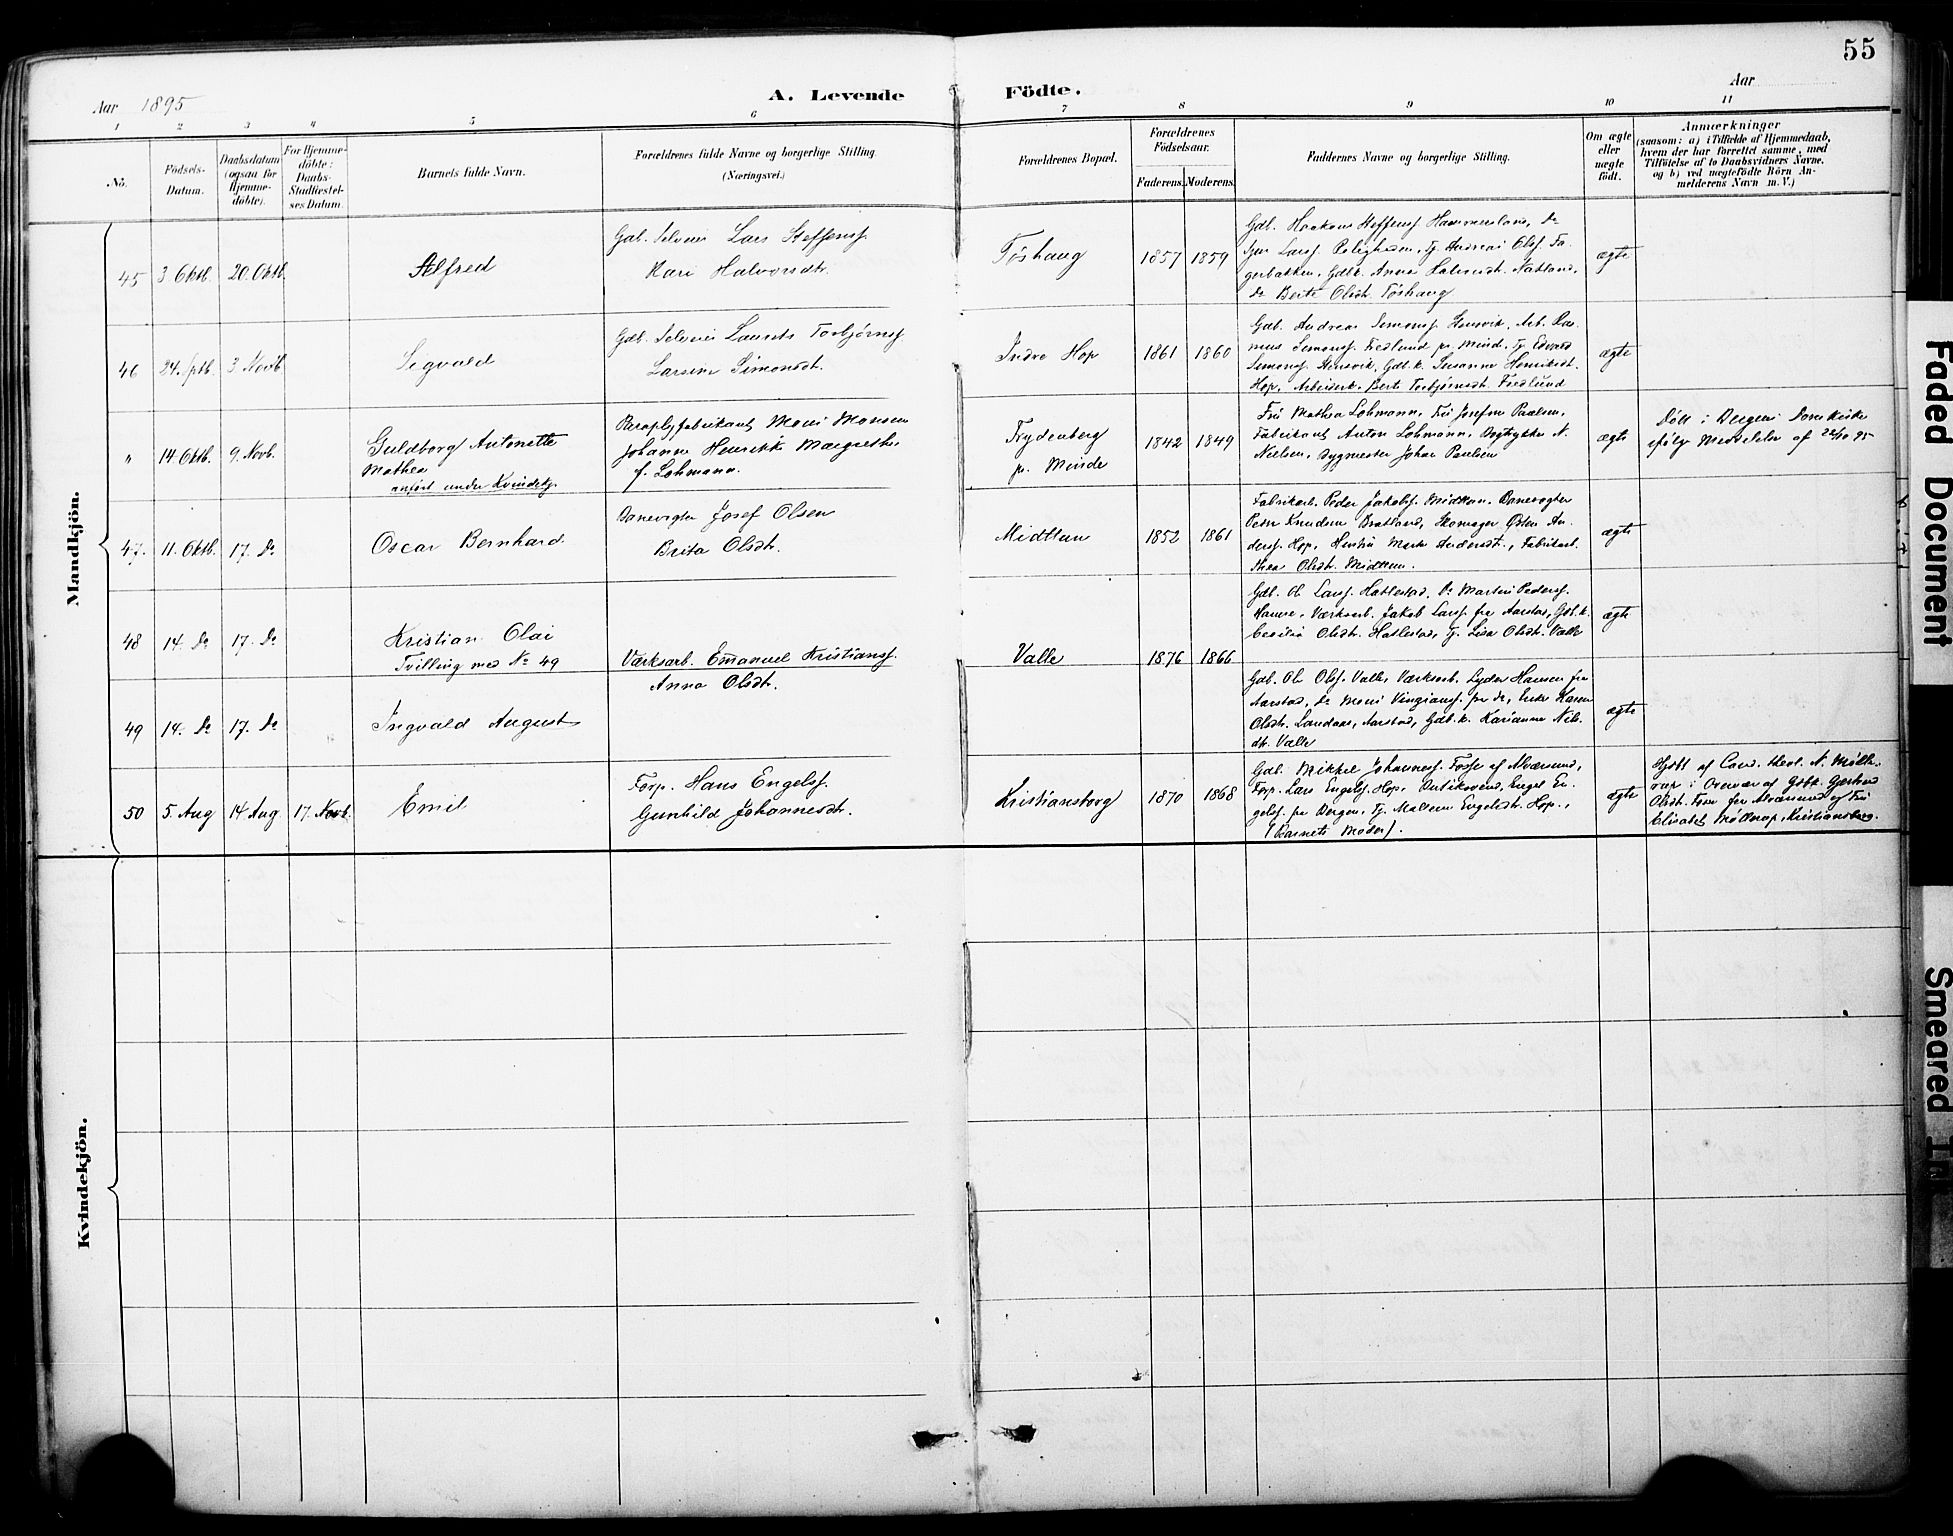 55
Aar 1895
A. Levende Födte.
Aar
1 2 3 4 5 6 7 8 9 10 11
No.
Födsels-
Datum.
Daabsdatum
(ogsaa for
Hjemme-
döbte).
For Hjemme-
döbte:
Daabs-
Stadfæstel-
ses Datum.
Barnets fulde Navn.
Forældrenes fulde Navne og borgerlige Stilling.
(Næringsvei.)
Forældrenes Bopæl.
Forældrenes
Födselsaar.
Faderens. Moderens.
Faddernes Navne og borgerlige Stilling.
Om ægte
eller
uægte
födt.
Anmærkninger
(saasom: a) i Tilfælde af Hjemmedaab,
hvem der har forrettet samme, med
Tilföielse af to Daabsvidners Navne,
og b) ved uægtefödte Börn An-
melderens Navn m. V.)
Mandkjön.
45 3 Oktb. 20. Oktb.
Alfred
Gdb. Selveier Lars Steffensf.
Kari Halvorsdtr.
Töshaug
1857 1859
Gdb. Haakon Steffensf. Hammersland, Do
Larsf.
Tj. Andreas Olsf. Fa-
gerbakken, Gdbk. Anna Natland,
Do Berte Olsdtr. Töshaug
ægte
46 24. Septb. 3 Novb.
Segvald
Gdb. Selveier Laurits Torbjörnsf.
Larsine Simonsdt.
Indre Hop
1861 1860
Gdb. Andreas Simonsf. Arb. Ras-
mus Simonsf. Fredlund pr. Minde, Tj. Edvard
Simonsf. Gdb.k. Susanne Henriksdt.
Hop, Arbeiderk. Berte Torbjörnsdt. Fredlund
ægte
" 14. Oktb. 9. Novb.
Guldborg Antonette
Mathea
anfört under Kvindekj.
Paraplyfabrikant Mons Monsen
Johanne Henrikke Margrethe
f. Lohmann.
Frydenberg
pr. Minde
1842 1849
Fru Mathea Lohmann, Fru Josefine Paulsen,
Fabrikant Anton Lohmann, Bogtrykker N.
Nielsen, Bygmester Johan Paulsen
ægte
Döbt i Bergens Domkirke
ifölge Meddelelse af 22/10 95
47. 11. Oktb. 17. Do
Oscar Bernhard.
Banevogter Josef Olsen
Brita Olsdt.
Midttun
1852 1861
Fabrikarb. Peder Jakobsf. Midttun, Banevogter
Peder Knudsen Bratland, Skomager Östen An-
dersf. Hop, Hustru Marte Andersdt., Fabrikarb.
Thea Olsdt. Midttun.
ægte
48 14. Do 17. Do
Kristian Olai
Tvilling med No 49
Værksarb. Emanuel Kristiansf.
Anna Olsdt.
Valle
1876 1866
Gdb. Ole Larsf. Hatlestad, Do Martin Pedersf.
Hauge, Værksarb. Jakob Larsf. fra Aarstad, Gdb.k.
Cecilia Olsdt. Hatlestad, Tj. Lisa Olsdt. Valle
ægte
49 14. Do 17. Do
Ingvald August
Gdb. Ole Olsf. Valle, Værksarb. Lyder Hansen fra
Aarstad, Do Mons fra do, Karen
Olsdt. Landaas, Aarstad, Gdb.k. Karianne Nils-
dt. Valle
ægte
50 5. Aug 14 Aug. 17. Novb.
Emil
Forp. Hans Engelsf.
Gunhild Johannesdt.
Kristiansborg
1870 1868
Gdb. Mikkel Johannesf. Fosse af Alversund,
Forp. Lars Engelsf. Hop, Engel En-
gelsf. fra Bergen, Tj. Malene Engelsdt. Hop,
(Barnets Moder).
ægte
Hjdöbt af Cand. theol. A. Mölle-
rup i Overvær af Gdbk. Gjertrud
Olsdt. Fosse fra Alversund og Fru
Elisabet Möllerup, Kristiansborg.
Kvindekjön.
Faded Document
Smeared In